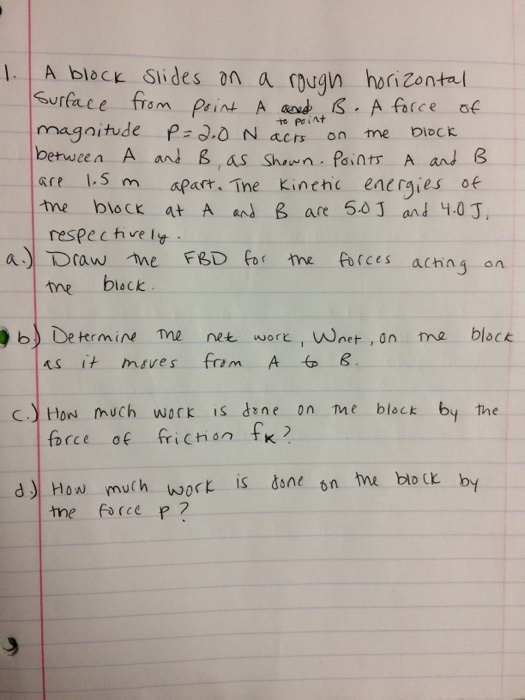 1. A block slides on a rough horizontal
surface from point A to point B. A force of
magnitude P=2.0 N acts on the block
between A and B, as shown. Points A and B
are 1.5 m apart. The kinetic energies of
the block at A and B are 5.0 J and 4.0 J,
respectively.
a.) Draw the FBD for the forces acting on
the block.
b) Determine the net work, Wnet, on the block
as it moves from A to B.
c.) How much work is done on the block by the
force of friction fK?
d.) How much work is done on the block by
the force P?